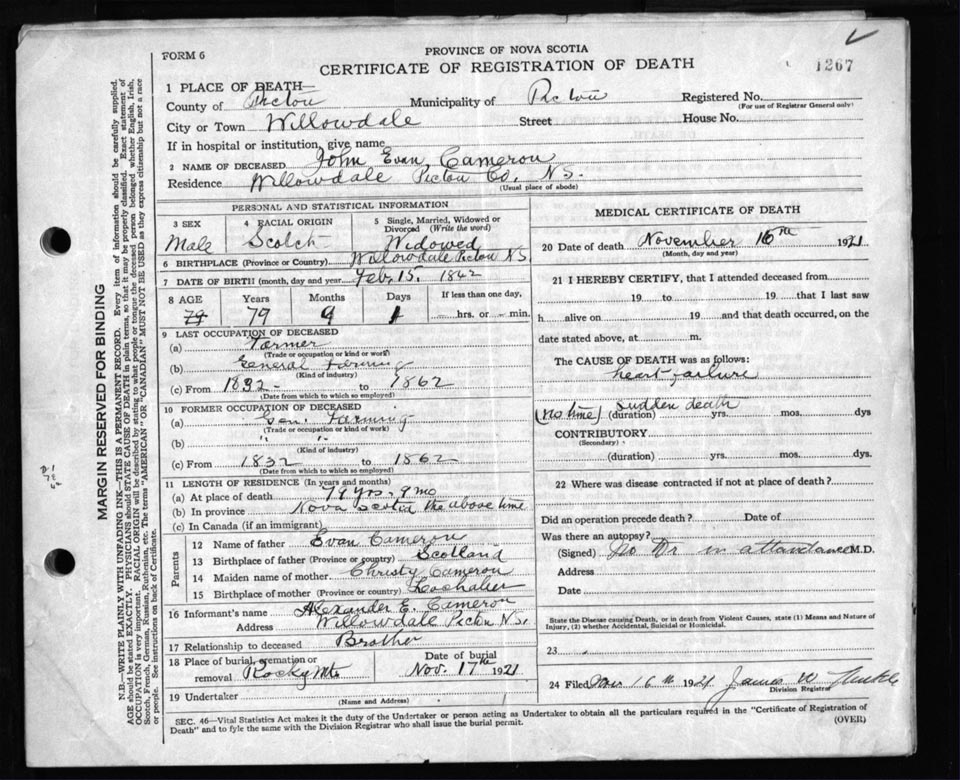 PROVINCE OF NOVA SCOTIA
FORM 6
CERTIFICATE OF REGISTRATION OF DEATH
1267
1 PLACE OF DEATH—
County of Pictou Municipality of Pictou Registered No.
(For use of Registrar General only)
City or Town Willowdale Street House No.
If in hospital or institution, give name
2 NAME OF DECEASED John Evan Cameron
Residence Willowdale Pictou Co. N.S.
(Usual place of abode)
PERSONAL AND STATISTICAL INFORMATION
3 SEX 4 RACIAL ORIGIN 5 Single, Married, Widowed or Divorced (Write the word)
Male Scotch Widowed
6 BIRTHPLACE (Province or Country) Willowdale Pictou N.S.
7 DATE OF BIRTH (month, day and year) Feb. 15. 1842
8 AGE Years Months Days If less than one day,
79 79 9 1 hrs. or min.
9 LAST OCCUPATION OF DECEASED
(a) Farmer
(Trade or occupation or kind or work)
(b) General Farming
(Kind of industry)
(c) From 1832 to 1862
(Date from which to which so employed)
10 FORMER OCCUPATION OF DECEASED
(a) Gen. Farming
(Trade or occupation or kind of work)
(b) " "
(Kind of industry)
(c) From 1832 to 1862
(Date from which to which so employed)
11 LENGTH OF RESIDENCE (In years and months)
(a) At place of death 79 yrs - 9 mo
(b) In province Nova Scotia the above time
(c) In Canada (if an immigrant)
Parents
12 Name of father Evan Cameron
13 Birthplace of father (Province or country) Scotland
14 Maiden name of mother Christy Cameron
15 Birthplace of mother (Province or Country) Lochaber
16 Informant's name Alexander E. Cameron
Address Willowdale Pictou N.S.
17 Relationship to deceased Brother
18 Place of burial, cremation or removal Rocky Mt. Date of burial Nov. 17th 1921
19 Undertaker
(Name and Address)
MEDICAL CERTIFICATE OF DEATH
20 Date of death November 16th 1921
(Month, day and year)
21 I HEREBY CERTIFY, that I attended deceased from
19 to 19 that I last saw
h alive on 19 and that death occurred, on the
date stated above, at m.
The CAUSE OF DEATH was as follows:
heart failure
(no time) sudden death
(duration) yrs. mos. dys
CONTRIBUTORY
(Secondary)
(duration) yrs. mos. dys.
22 Where was disease contracted if not at place of death?
Did an operation precede death? Date of
Was there an autopsy?
(Signed) No Dr in attendance M.D.
Address
Date
State the Disease causing Death, or in death from Violent Causes, state (1) Means and Nature of
Injury, (2) whether Accidental, Suicidal or Homicidal.
23
24 Filed Nov 16th 1921 James W
Division Registrar
SEC. 46—Vital Statistics Act makes it the duty of the Undertaker or person acting as Undertaker to obtain all the particulars required in the "Certificate of Registration of
Death" and to fyle the same with the Division Registrar who shall issue the burial permit.
(OVER)
MARGIN RESERVED FOR BINDING
N.B.—WRITE PLAINLY WITH UNFADING INK—THIS IS A PERMANENT RECORD. Every item of information should be carefully supplied.
AGE should be stated EXACTLY. PHYSICIANS should STATE CAUSE OF DEATH in plain terms, so that it may be properly classified. Exact statement of
OCCUPATION is very important. RACIAL ORIGIN will be described by stating to what people or tongue the deceased person belonged whether English, Irish,
Scotch, French, German, Russian, Ruthenian, etc. The terms "AMERICAN" OR "CANADIAN" MUST NOT BE USED as they express citizenship but not a race
or people. See instructions on back of Certificate.